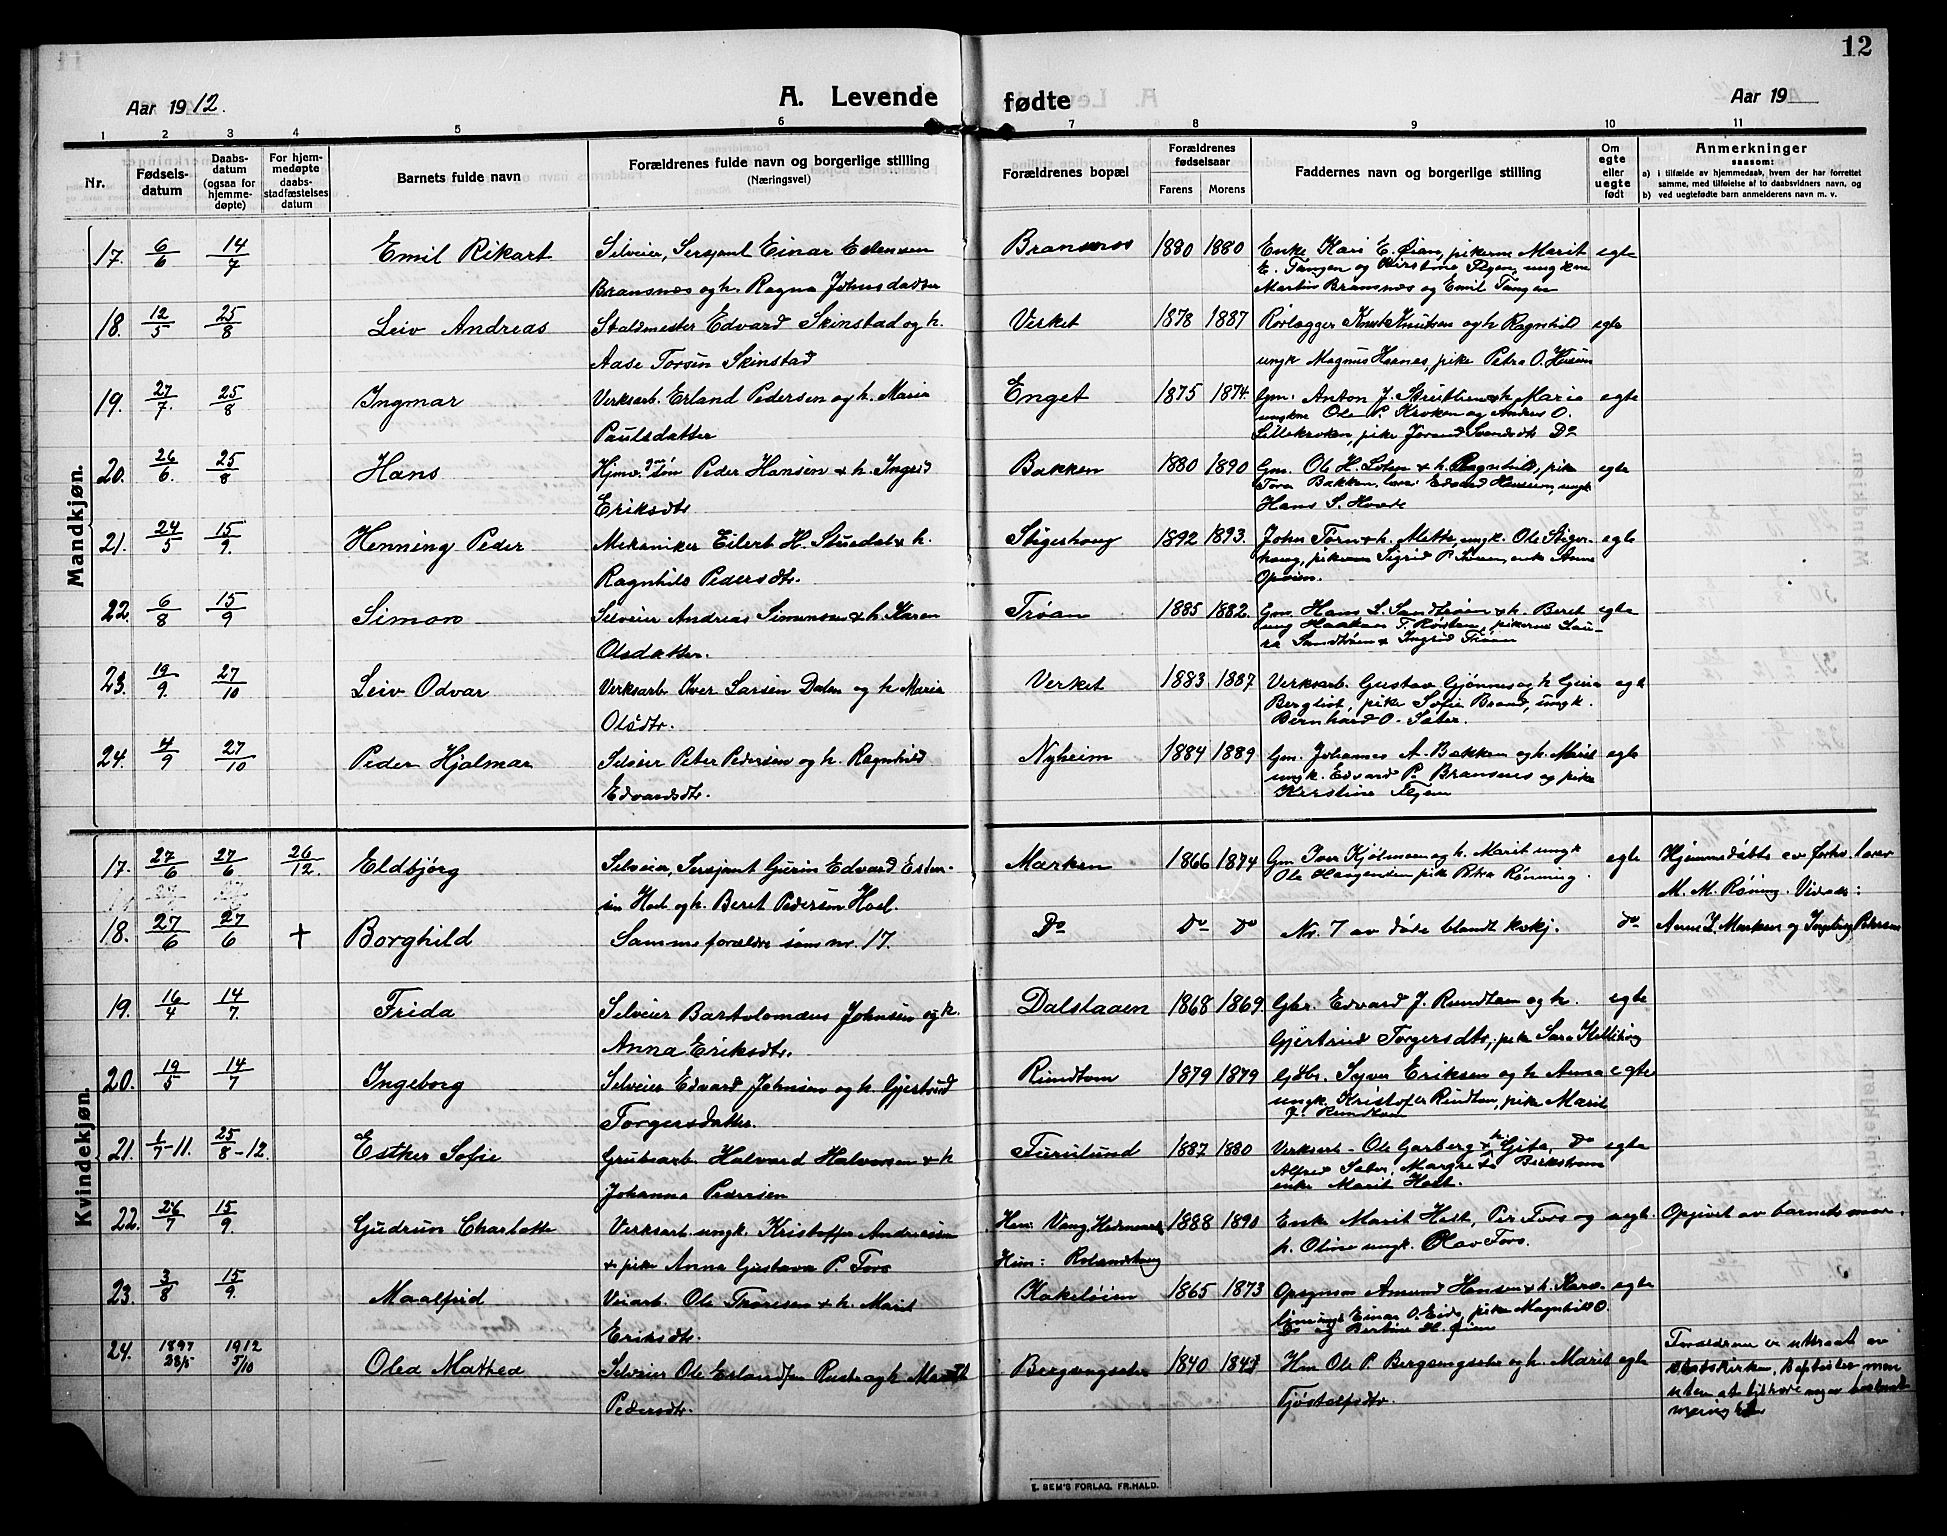 12
Aar 1912.
A. Levende fødte
Aar 19
1 2 3 4 5 6 7 8 9 10 11
Nr.
Fødsels-
datum
Daabs-
datum
(ogsaa for
hjemme-
døpte)
For hjem-
medøpte
daabs-
stadfæstelses
datum
Barnets fulde navn
Forældrenes fulde navn og borgerlige stilling
(Næringsvei)
Forældrenes bopæl
Forældrenes
fødselsaar
Farens Morens
Faddernes navn og borgerlige stilling
Om
egte
eller
uegte
født
Anmerkninger
saasom:
a) i tilfælde av hjemmedaab, hvem der har forrettet
samme, med tilføielse af to daabsvidners navn, og
b) ved uegtefødte barn anmelderens navn m. v.
Mandkjøn.
17. 6/6 14/7 Emil Rikart Selveier, Sersjant Einar Estensen Bransnes 1880 1880 Enke Kari E. Øian, pikerne Marit egte
Bransnes og h. Ragna Johnsdatter E. Tangen og Kirstine Flgen, ungkne
Martin Bransnes og Emil Tangen
18. 12/5 25/8 Leiv Andreas Staldmester Edvard Skinstad og h. Verket 1878 1887 Rørlægger Knut Knutsen og h Ragnhild egte
Aase Torsen Skinstad ungk Magnus Hosnes, pike Petra O.
19. 27/7. 25/8 Ingmar Verksarb. Erland Pedersen og h. Maria Enget 1875 1874. Gm. Anton J. h. Maria egte
Paulsdatter ungkne Ole P. Kroken og Andres O.
Lillekroken, pike Jorand Svendsdtr Do
20. 26/6. 25/8 Hans Peder Hansen & h. Ingrid Bakken 1880 1890 Gm. Ole H. & h. Ragnhild, pike egte
Eriksdtr Tora Bakken, Edvard Hanssen, ungk
Hans S.
21. 24/5 15/9. Henning Peder Mekaniker Eilert H. Stuedal & h. Stigerhaug 1892 1893. John Torn & h. Mette, ungk. Ole Stiger- egte
Ragnhild Pedersdtr. haug, pikerne Sigrid P. enke Anne
22. 6/8 15/9 Simon Selveier Andreas Simensen & h. Karen Trøan 1885 1882. Gm. Hans L. Sandtrøen & h. Beret egte
Olsdatter. ung Haaken T. pikerne Lau-
ra Sandtrøen & Ingrid Trøen
23. 19/9. 27/10 Leiv Odvar Verksarb. Iver Larsen Dalen og h Maria Verket 1883 1887 Verksarb. Gustav Gjønnes og h egte
Olsdtr. Bergliot, pike Sofie Brand, ungk.
Bernhard O. Sæter.
24. 4/9 27/10 Peder Hjalmar Selveier Peter Pedersen og h. Ragnhild Nyheim 1884 1889 Gm. Johannes A. Bakken og h. Marit egte
Edvardsdtr. ungk. Edvard P. Bransnes og pike
Kirstine Flgen
Kvindekjøn.
17. 27/6 27/6 26/12. Eldbjørg Selveier Sersjant Edvard Esten- Marken 1866 1874 Gm Iver Kjølmoen og h. Marit ungk egte Hjemmedøbt av lærer
sen Hoel og h. Beret Pedersen Hoel. Ole Haagensen pike Petra Rønning. M. M. Røning. Vidner:
18. 27/6 27/6 + Borghild Samme forældre som nr. 17. Do Do Do Nr. 7 av døde blandt kvkj. do Anne I. Marken og Ingeborg Petersen
19. 16/4 14/7. Frida Selveier Bartolomæus Johnsen og h. Dalslaaen 1868 1869 Gbr. Edvard J. Rundtom og h. egte
Anna Eriksdtr. Gjertrud Torgersdtr, pike Sara
20. 19/5 14/7 Ingeborg Selveier Edvard Johnsen og h. Gjertrud Rundtom 1879 1879 Gdbr. Syver Eriksen og h Anna egte
Torgersdatter. ungk. Kristofer Rundtom, pike Marit
J. Rundtom
21. 1/7-11. 25/8-12. Esther Sofie Grubearb. Halvard Halvorsen & h Furulund 1887 1880 Verksarb. Ole Garberg & h Gjeta, Do egte
Johanna Pedersen Alfred Sæter, Margrete Birkstrøm
enke Marit Holt.
22. 26/7 15/9. Gudrun Charlotte Verksarb. ungk. Kristoffer Andreassen Han: Vang, Hedemark 1888 1890 Enke Marit Holt, Per Fors og uegt. Opgivet av barnets mor.
& pike Anna Gustava P. Fors Hun: Rolandhaug h. Oline ungk. Olav Fors.
23. 3/8 15/9. Maalfrid Veiarb. Ole Thoresen & h. Marit Kokeløien 1865 1873 Opsynsm Amund Hansen & h. Karo- egte
Eriksdtr. line ungk Einar O. Eide, pike Magnhild O.
Do og Bertine H. Øien
24. 1897 28/5 1912 5/10 Olea Mathea Selveier Ole Erlandsen og h. Marit Bergsengseter 1840 184 Hm Ole P. Bergsengseter og h. Marit egte Forældrene er uttraat av
Pedersdtr. Tjøstolfsdtr. statskirken, Baptister men
uten at tilhøre nogen bestemt
menighet
E. SEM'S FORLAG. FR.HALD.